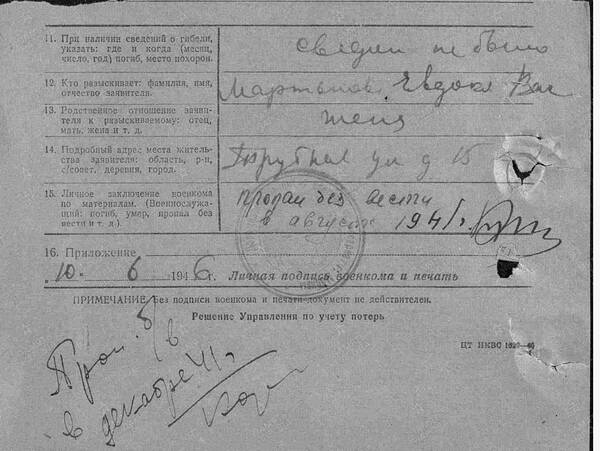 11. При наличии сведений о гибели,
указать: где и когда (месяц,
число, год) погиб, место похорон.
сведен не было
12. Кто разыскивает: фамилия, имя,
отчество заявителя.
Мартынова Евдок Вас
13. Родственное отношение заяви-
теля к разыскиваемому: отец,
мать, жена и т. д.
жена
14. Подробный адрес места житель-
ства заявителя: область, р-н,
с/совет, деревня, город.
Трубная ул д 15
15. Личное заключение военкома
по материалам. (Военнослужа-
щий: погиб, умер, пропал без
вести и т. д.).
пропал без вести
в августе 1941г.
16. Приложение
10. 6 1946г. Личная подпись военкома и печать
ПРИМЕЧАНИЕ Без подписи военкома и печати документ не действителен.
Решение Управления по учету потерь
ЦТ НКВС
Проп. б/в
в декабре 41г.